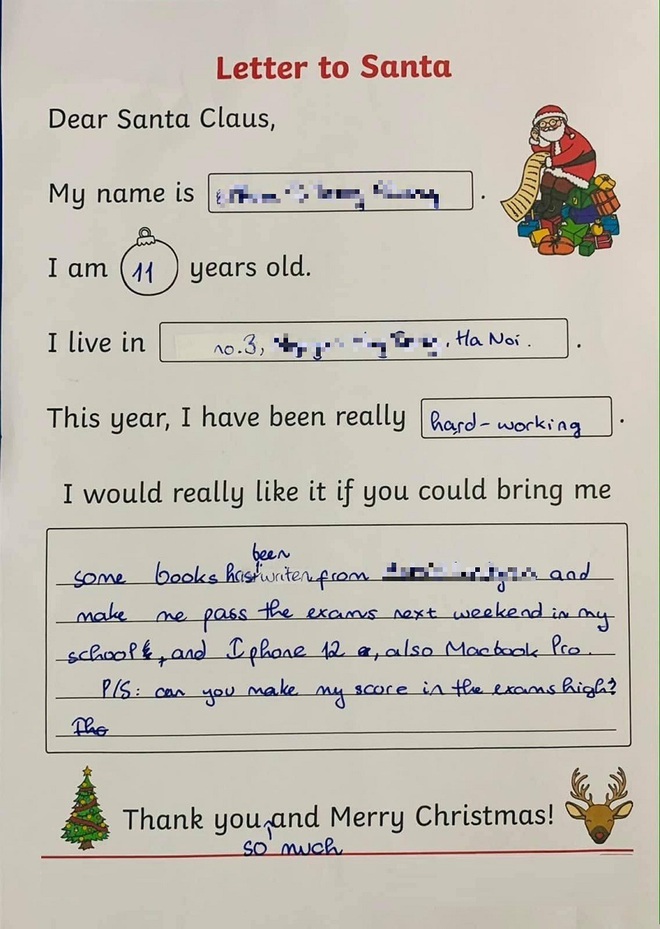 Letter to Santa
Dear Santa Claus,
My name is .
I am 11 years old.
I live in no.3, , Ha Noi. .
This year, I have been really hard-working .
I would really like it if you could bring me
been
some books has writen from and
make me pass the exams next weekend in my
school, and Iphone 12, also Macbook Pro.
P/S: can you make my score in the exams high?
Tho
Thank you, and Merry Christmas!
so much